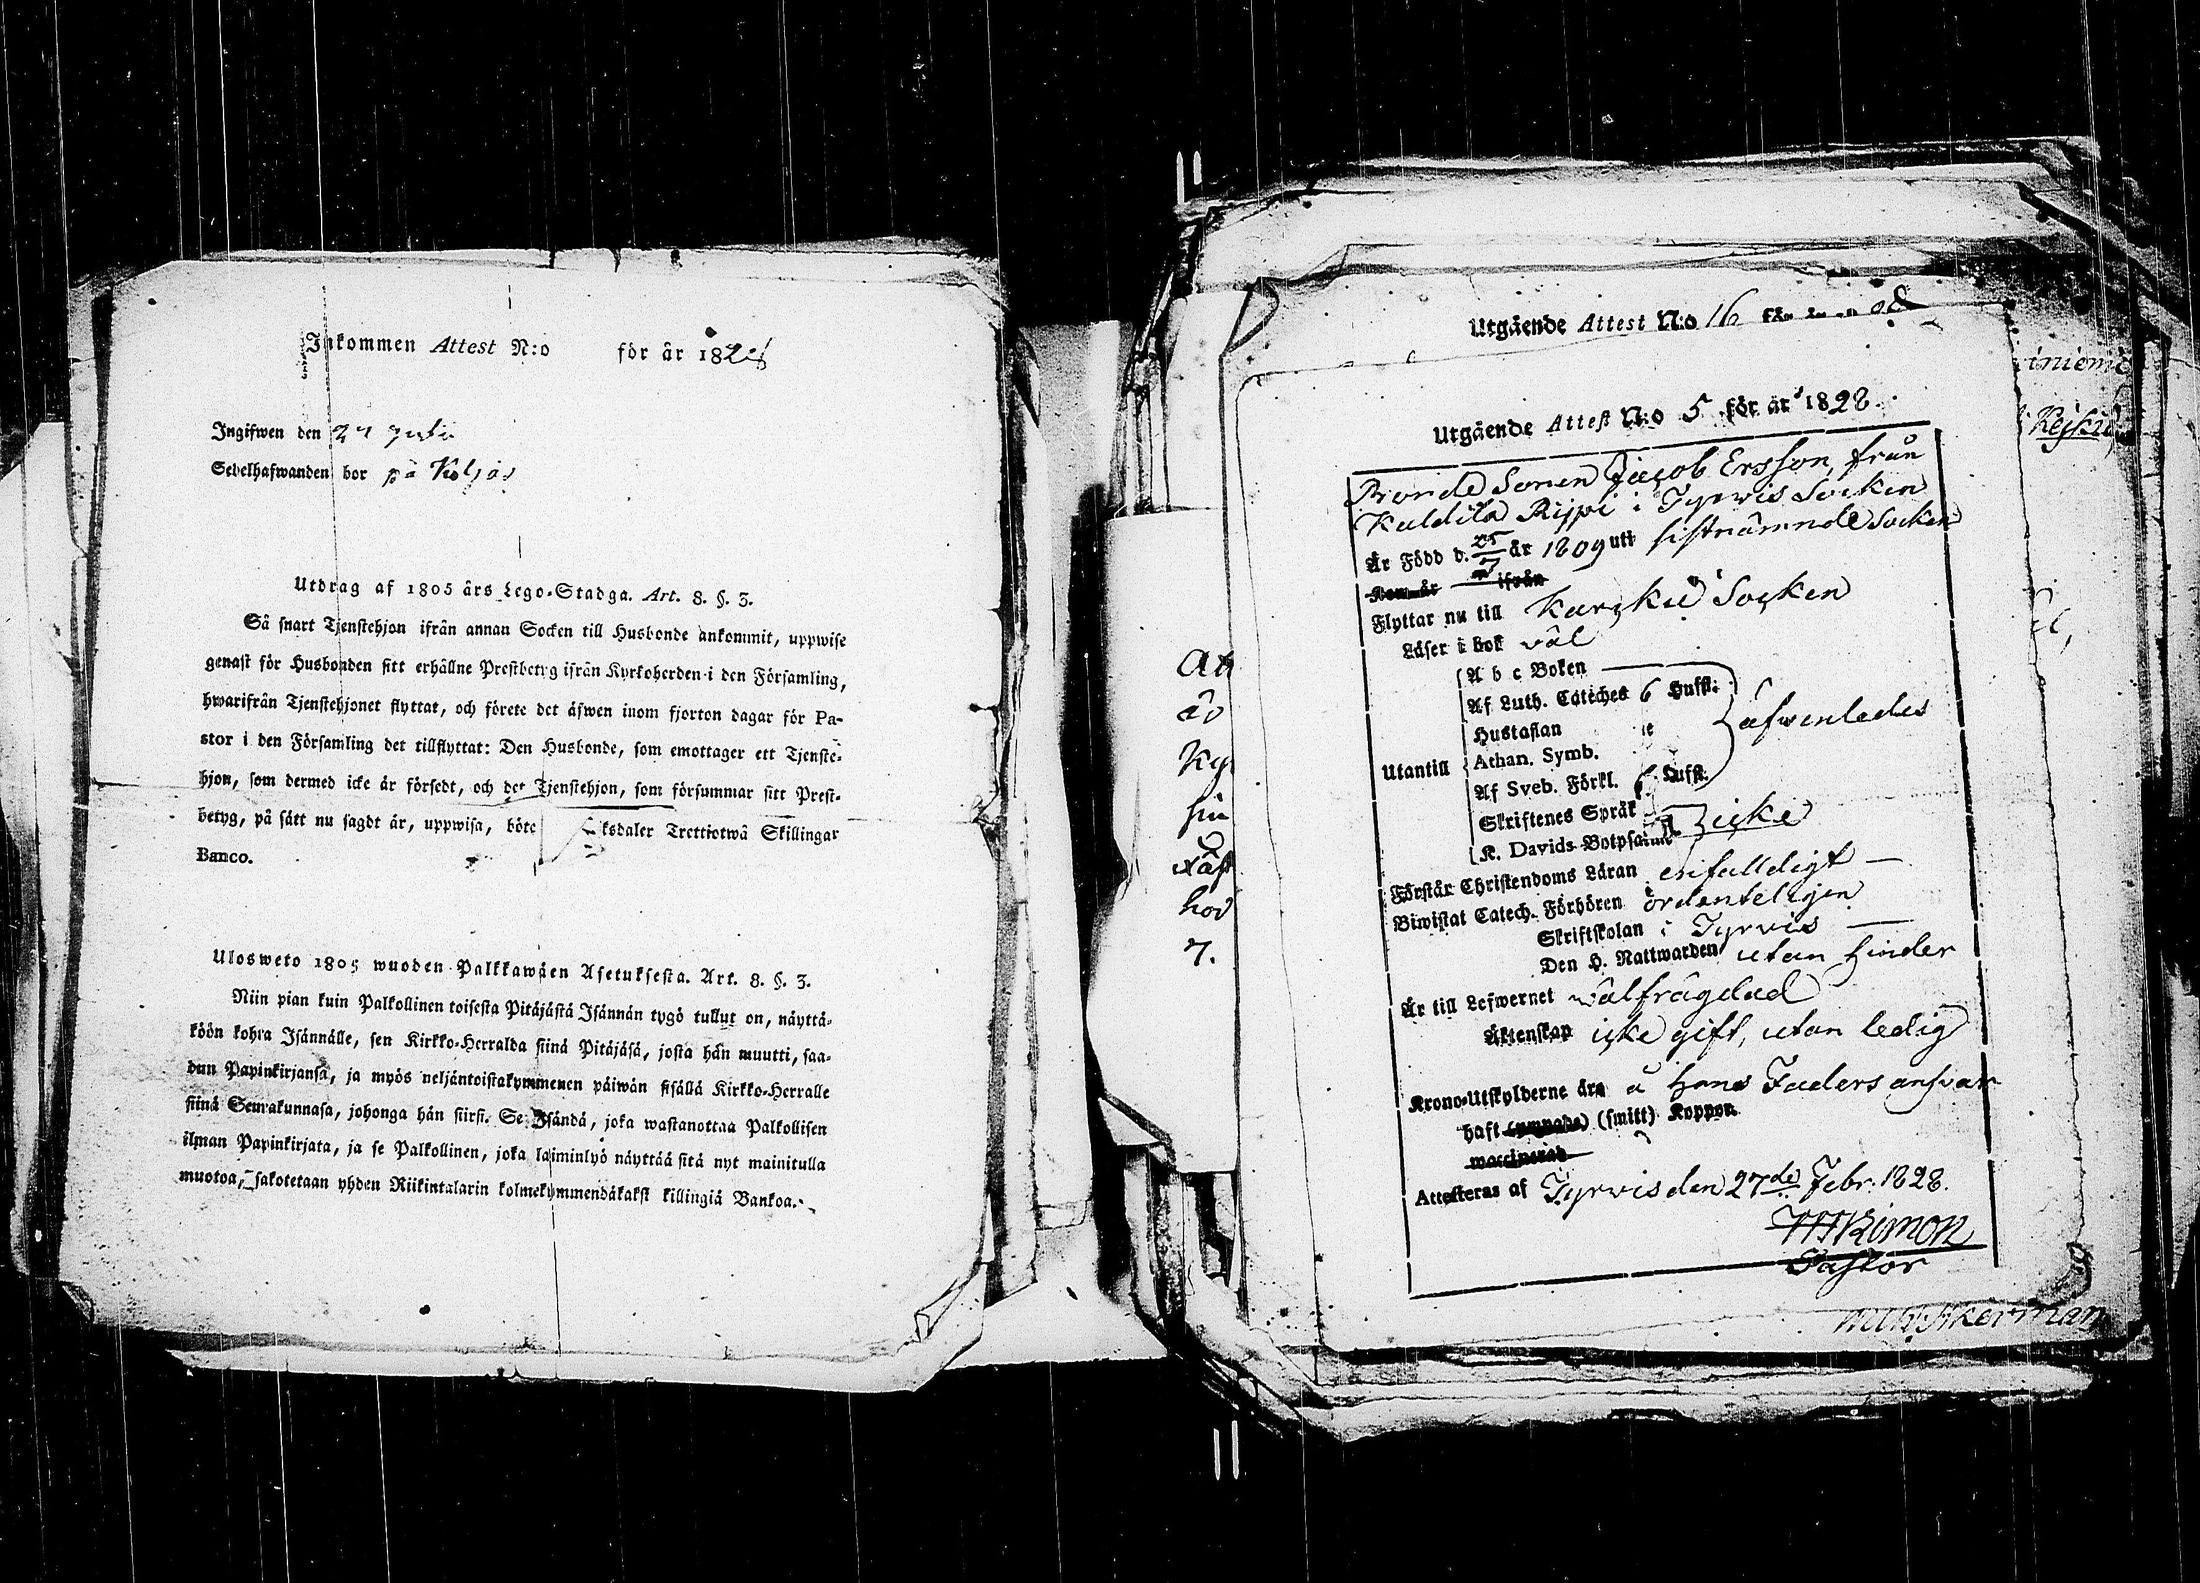 Inkommen Attest N:o för år 1828
Ingifwen den 27 Julii
Sedelhafwanden bor på
Utdrag af 1805 års Lego-Stadga. Art. 8. §. 3.
Så snart Tjenstehjon ifrån annan Socken till Husbonde ankommit, uppwise
genast för Husbonden sitt erhållne Prestbetyg ifrån Kyrkoherden i den Församling,
hwarifrån Tjenstehjonet flyttat, och förete det äfwen inom fjorton dagar för Pa-
stor i den Församling det tillflyttat: Den Husbonde, som emottager ett Tjenste-
hjon, som dermed icke är försedt, och det Tjenstehjon, som försummar sitt Prest-
betyg, på sätt nu sagdt är, uppwisa, böte ksdaler Trettiotwå Skillingar
Banco.
Ulosweto 1805 wuoden Palkkawäen Asetuksesta. Art. 8. §. 3.
Niin pian kuin Palkollinen toisesta Pitäjästä Isännän tygö tullut on, näyttä-
köön kohta Isännälle, sen Kirkko-Herralda siinä Pitäjäsä, josta hän muutti, saa-
dun Papinkirjansa, ja myös neljäntoistakymmenen päiwän sisällä Kirkko-Herralle
siinä Seurakunnasa, johonga hän siirsi. Se Isändä, joka wastanottaa Palkollisen
ilman Papinkirjata, ja se Palkollinen, joka laiminlyö näyttää sitä nyt mainitulla
muotoa, sakotetaan yhden Riikintalarin kolmekymmendäkaksi killingiä Bankoa.
Utgående Attest N:o 16 för år
Utgående Attest N:o 5 för år 1828.
Bonde Sonen Jacob Ersson, från
Kaldila Rippi i Tyrwis Socken
Är Född d. 25/7 år 1809 uti sistnämnde Socken
Kom år ifrån
Flyttar nu till Karcku Socken
Läser i bok väl
A b c Boken
Af Luth. Cateches 6 Huffst.
Hustaflan
Athan. Symb.
Utantill
Af Sveb. Förkl. 6 Huffst.
äfwenledes
Skriftenes Språk
K. Davids Botpsalm
icke
Förstår Christendoms Läran enfalldigt
Biwistat Catech. Förhören ordenteligen
Skriftskolan i Tyrvis
Den H. Nattwarden utan hinder
Är till Lefwernet wälfrägdad
Äktenskap icke gift, utan ledig
Krono-Utskylderne äro å Hans Faders ansvar
haft (ympade) (smitt) Koppor
waccinerad
Attesteras af Tyrvis den 27de Febr. 1828.
Pastor
Åkerman